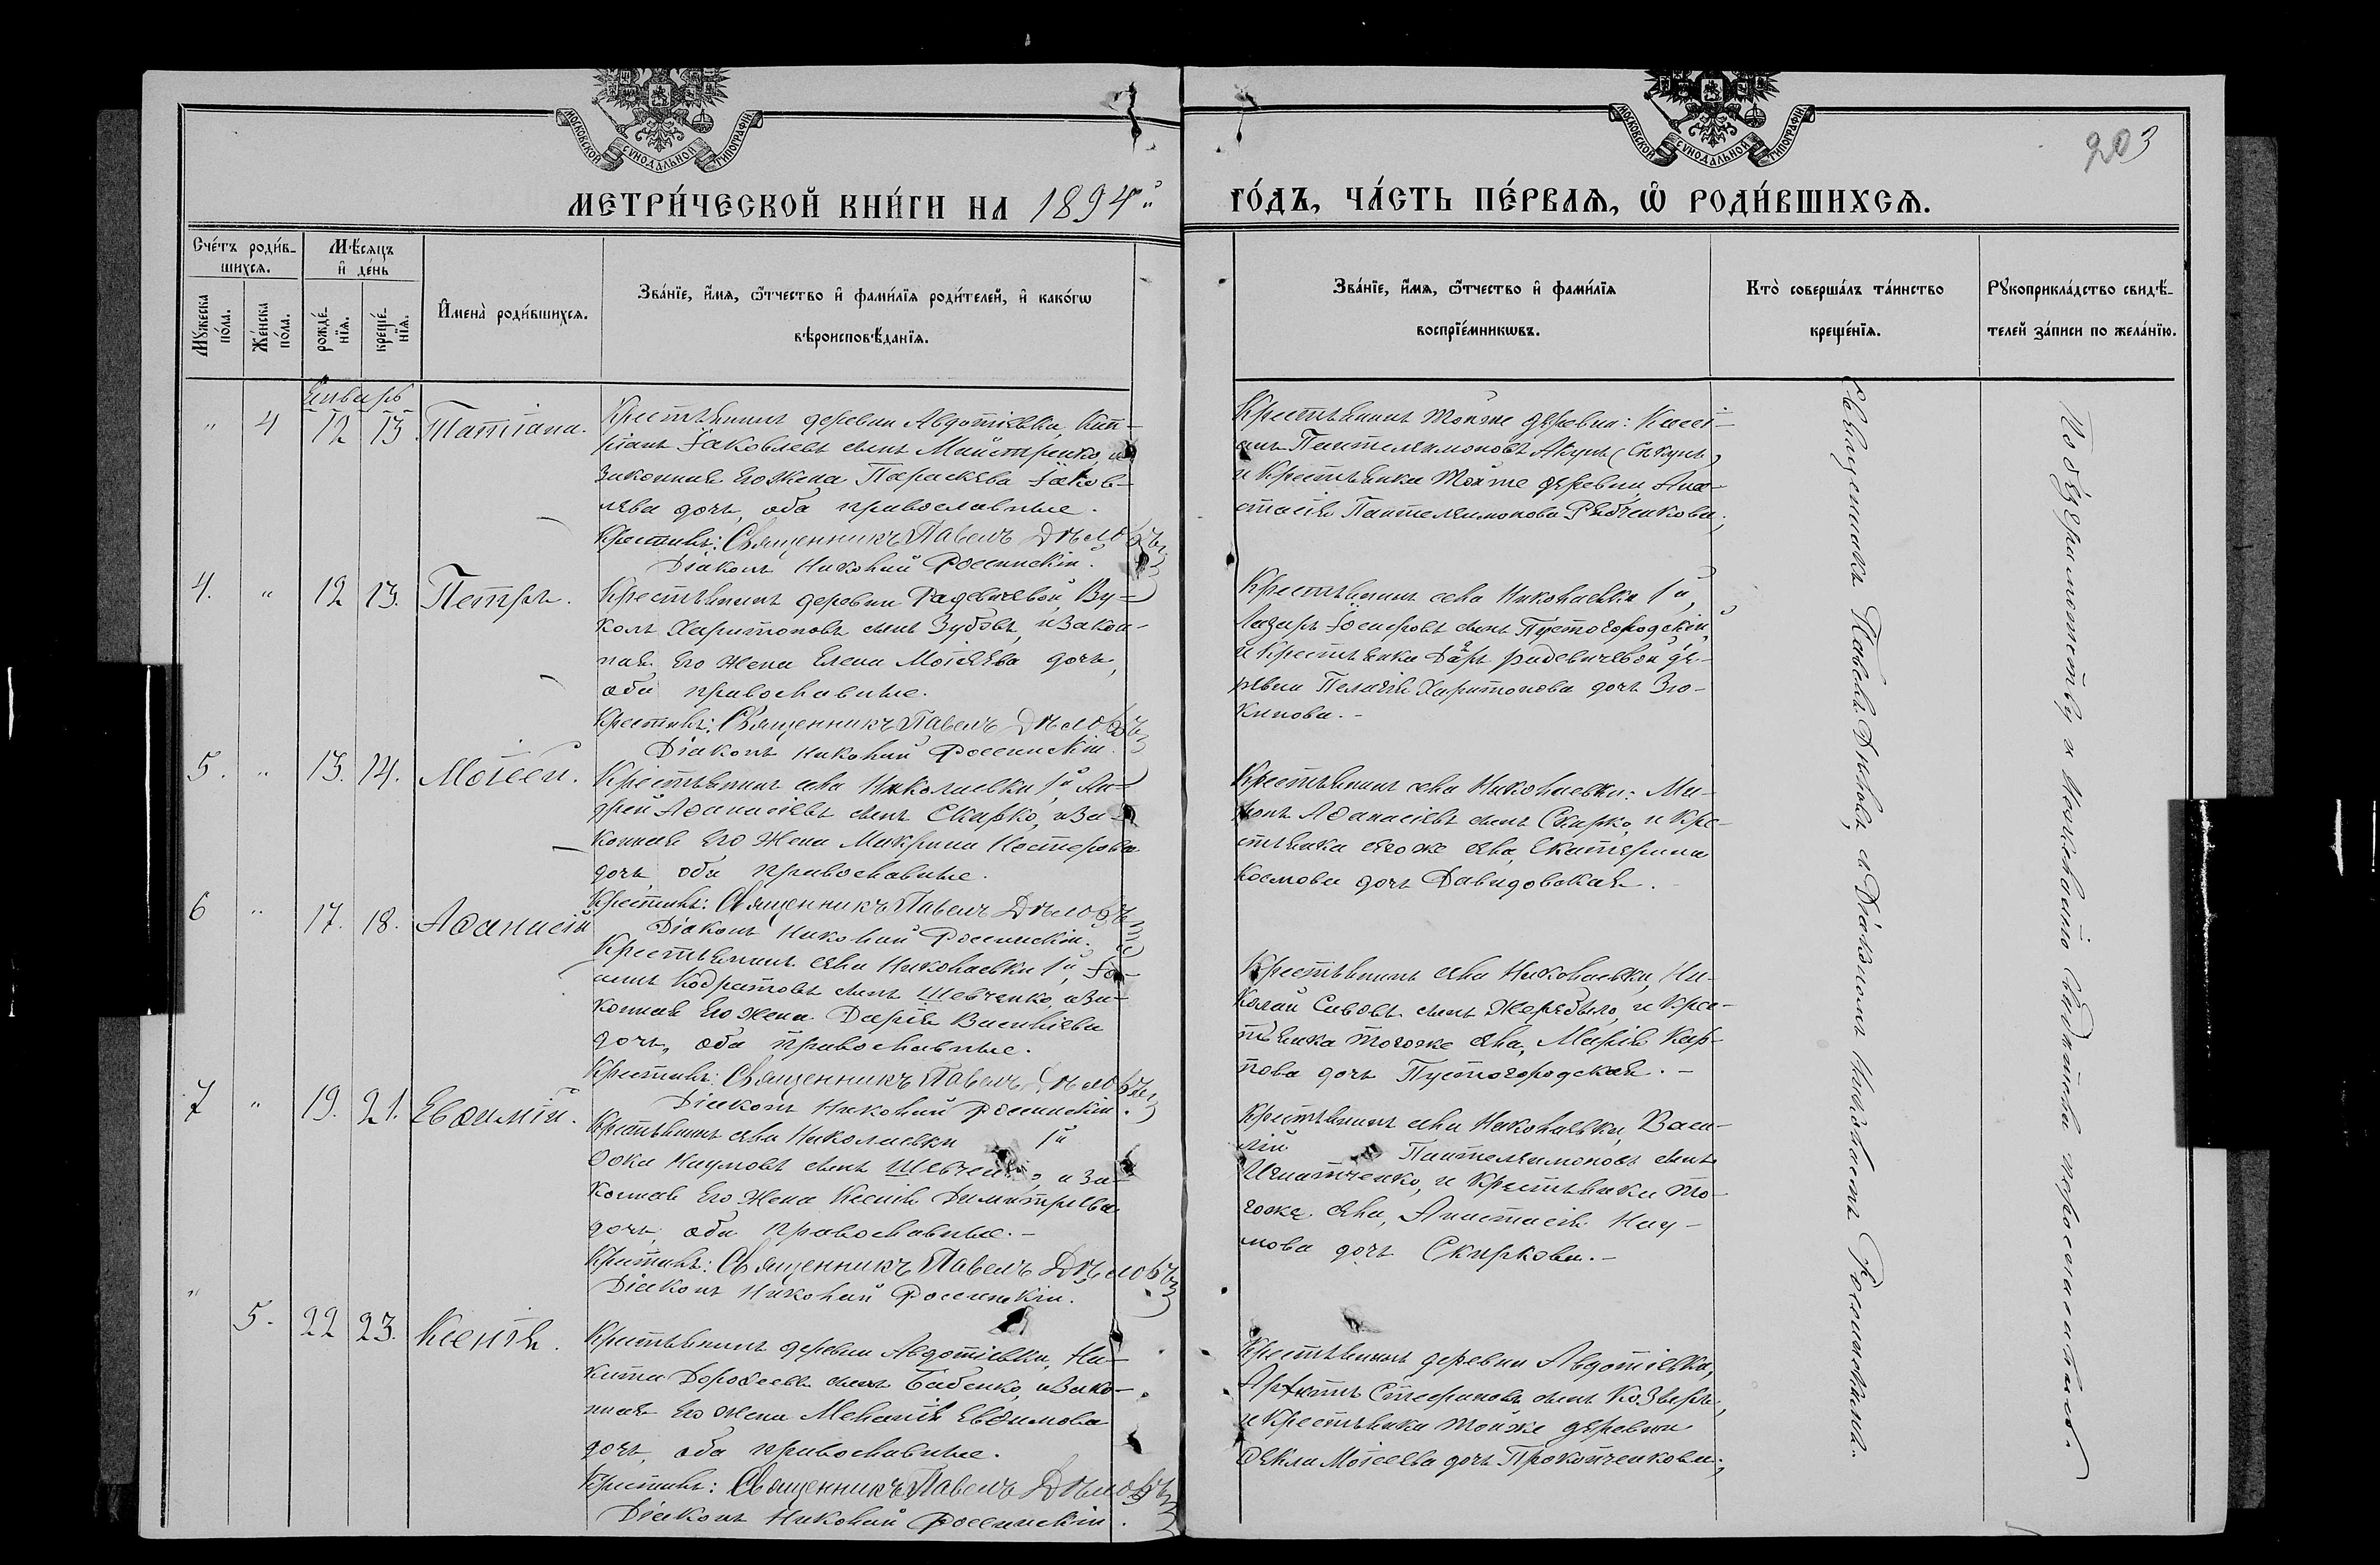 МОСКОВСКОЙ СѴНОДАЛЬНОЙ ТИПОГРАФІИ
МОСКОВСКОЙ СѴНОДАЛЬНОЙ ТИПОГРАФІИ
203
МЕТРИ́ЧЕСКОЙ КНИ́ГИ НА 1894й ГО́ДЪ, ЧА́СТЬ ПЕ́РВАѦ, Ѡ҆ РОДИ́ВШИХСѦ.
Сче́тъ роди́в-
шихсѧ.
Му́жеска по́ла.
Же́нска по́ла.
Мѣ́сѧцъ
и҆ де́нь
рожде́-
нїѧ.
креще́-
нїѧ.
И҆мена̀ роди́вшихсѧ.
Зва́нїе, и҆́мѧ, ѻ҆́тчество и҆ фами́лїѧ роди́телей, и҆ како́гѡ
вѣроисповѣ́данїѧ.
Зва́нїе, и҆́мѧ, ѻ҆́тчество и҆ фами́лїѧ
воспрїе́мникѡвъ.
Кто̀ соверша́лъ та́инство
креще́нїѧ.
Рꙋкоприкла́дство свидѣ́-
телей за́писи по жела́нїю.
Январь
" 4 12 13 Татіана.
Крестьянинъ деревни Авдотіевки, Кип-
ріанъ Іаковлевъ сынъ Майстренко, и
законная его жена Параскева Іаков-
лева дочь, оба православные.
Крестилъ: Священникъ Павелъ Дѣловъ
Діаконъ Николай Россинскій.
Крестьянинъ тойже деревни: Кассі-
анъ Пантелеимоновъ
и Крестьянка тойже деревни, Ана-
стасія Пантелеимонова Рябченкова;
4. " 12 13. Петръ.
Крестьянинъ деревни Радевичевой, Ву-
колъ Харитоновъ сынъ Зубовъ, и закон-
ная его жена Елена Моѵсеева дочь,
оба православные.
Крестилъ: Священникъ Павелъ Дѣловъ
Діаконъ Николай Россинскій.
Крестьянинъ села Николаевки 1й,
Лазарь Іосифовъ сынъ Пустогородскій,
и Крестьянка Радевичевой де-
ревни Пелагія Харитонова дочь Зю-
кинова.-
5. " 13. 14. Моѵсей.
Крестьянинъ села Николаевки 1й Ан-
дрей Аѳанасіевъ сынъ Скирко, и за-
конная его жена Макрина Несторова
дочь, оба православные.
Крестилъ: Священникъ Павелъ Дѣловъ
Діаконъ Николай Россинскій.
Крестьянинъ села Николаевки: Ми-
ронъ Аѳанасіевъ сынъ Скирко, и Кре-
стьянка сегоже села, Екатерина
Космова дочь Давидовская.
6 " 17. 18. Аѳанасій
Крестьянинъ села Николаевки 1й, Іо-
аннъ Кодратовъ сынъ Шевченко, и за-
конная его жена Дарія Василіева
дочь, оба православные.
Крестилъ: Священникъ Павелъ Дѣловъ
Діаконъ Николай Россинскій.
Крестьянинъ села Николаевки, Ни-
колай Саввовъ сынъ Жеребыло, и Крес-
тьянка тогоже села, Марія Кар-
пова дочь Пустогородская.-
7 " 19. 21. Евѳимій.
Крестьянинъ села Николаевки 1й
Ѳока Наумовъ сынъ Шевченко, и за-
конная его жена Ксенія Димитріева
дочь, оба православные.-
Крестилъ: Священникъ Павелъ Дѣловъ
Діаконъ Николай Россинскій.
Крестьянинъ села Николаевки, Васи-
лій Пантелеимоновъ сынъ
Игнатченко, и Крестьянка то-
гоже села, Анастасія Нау-
мова дочь Скиркова.-
" 5. 22 23. Ксенія.
Крестьянинъ деревни Авдотіевки, Ни-
кита Дороѳеевъ сынъ Бабенко, и зако-
нная его жена Меланія Евѳимова
дочь, оба православные.
Крестилъ: Священникъ Павелъ Дѣловъ
Діаконъ Николай Россинскій.
Крестьянинъ деревни Авдотіевки,
Стефановъ сынъ Козырь,
и Крестьянка тойже деревни
Ѳекла Моѵсеева дочь Прокопченкова;
Священникъ Павелъ Дѣловъ, съ Діакономъ Николаемъ Россинскимъ.
По безграмотству и нежеланію свидѣтели